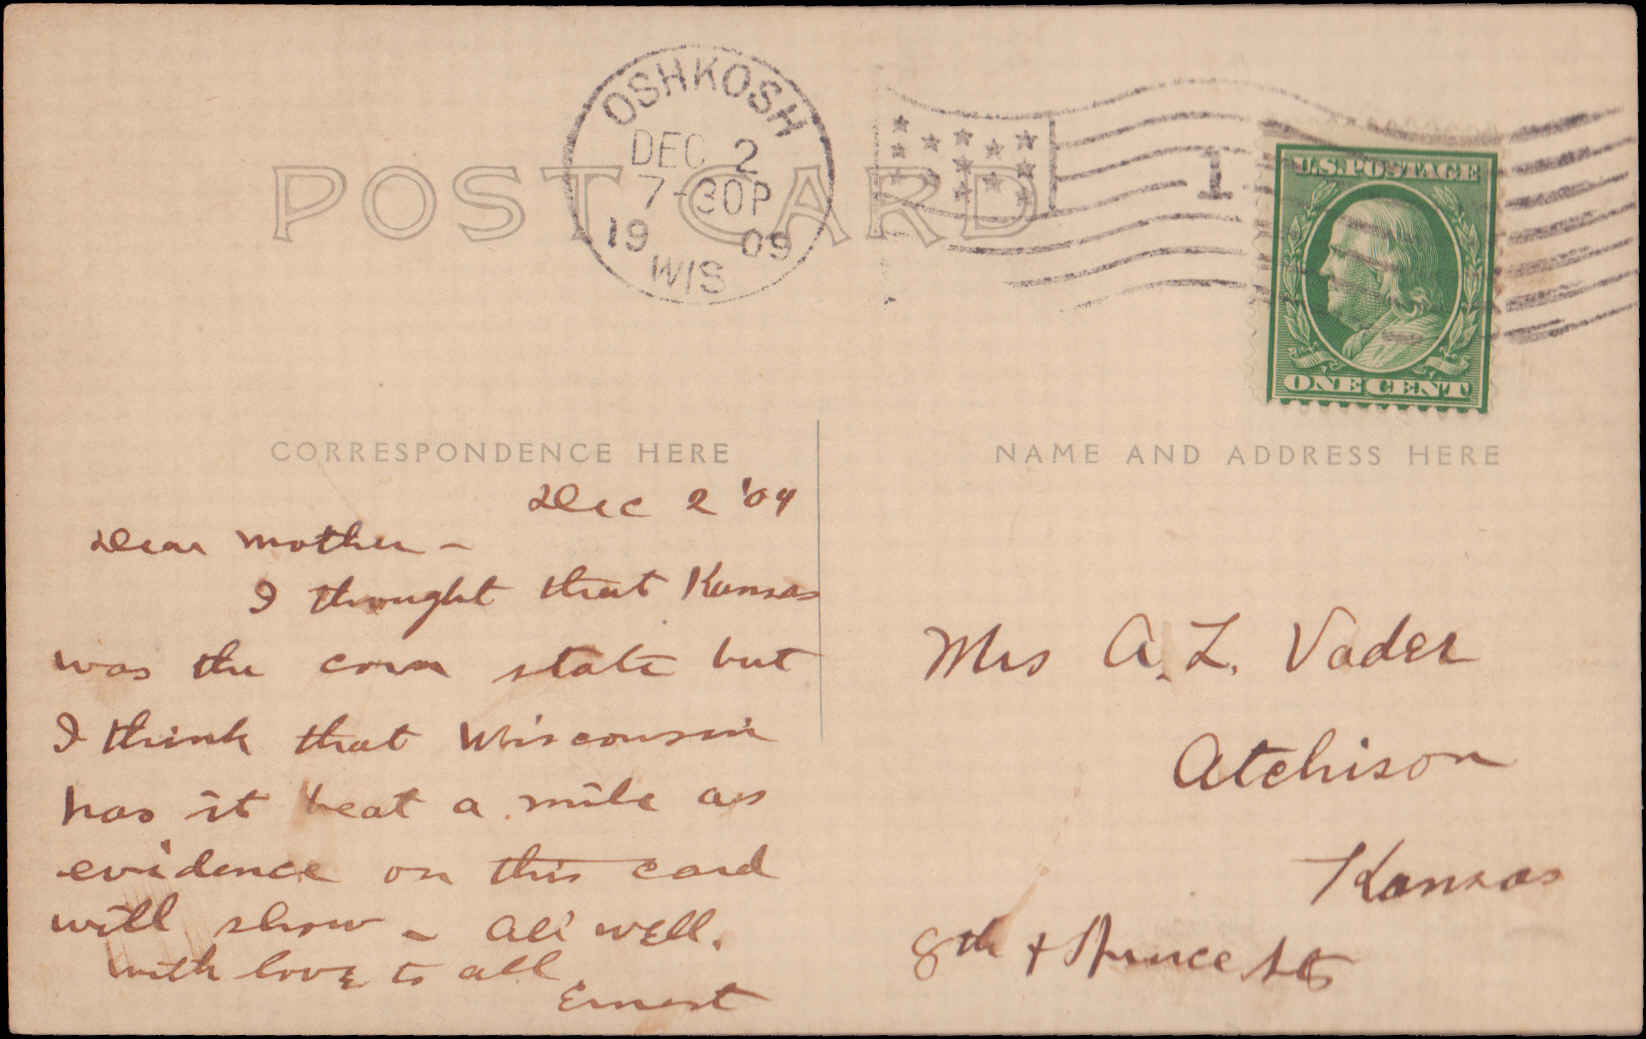 OSHKOSH
DEC 2
7-30P
1909
WIS
1
U.S. POSTAGE
ONE CENT
POST CARD
CORRESPONDENCE HERE
NAME AND ADDRESS HERE
Dec 2 '09
Dear Mother –
I thought that Kansas
was the corn state but
I think that Wisconsin
has it beat a mile as
evidence on this card
will show – All well.
with love to all
Ernest
Mrs A. L. Vader
Atchison
Kansas
8th & Spruce Sts